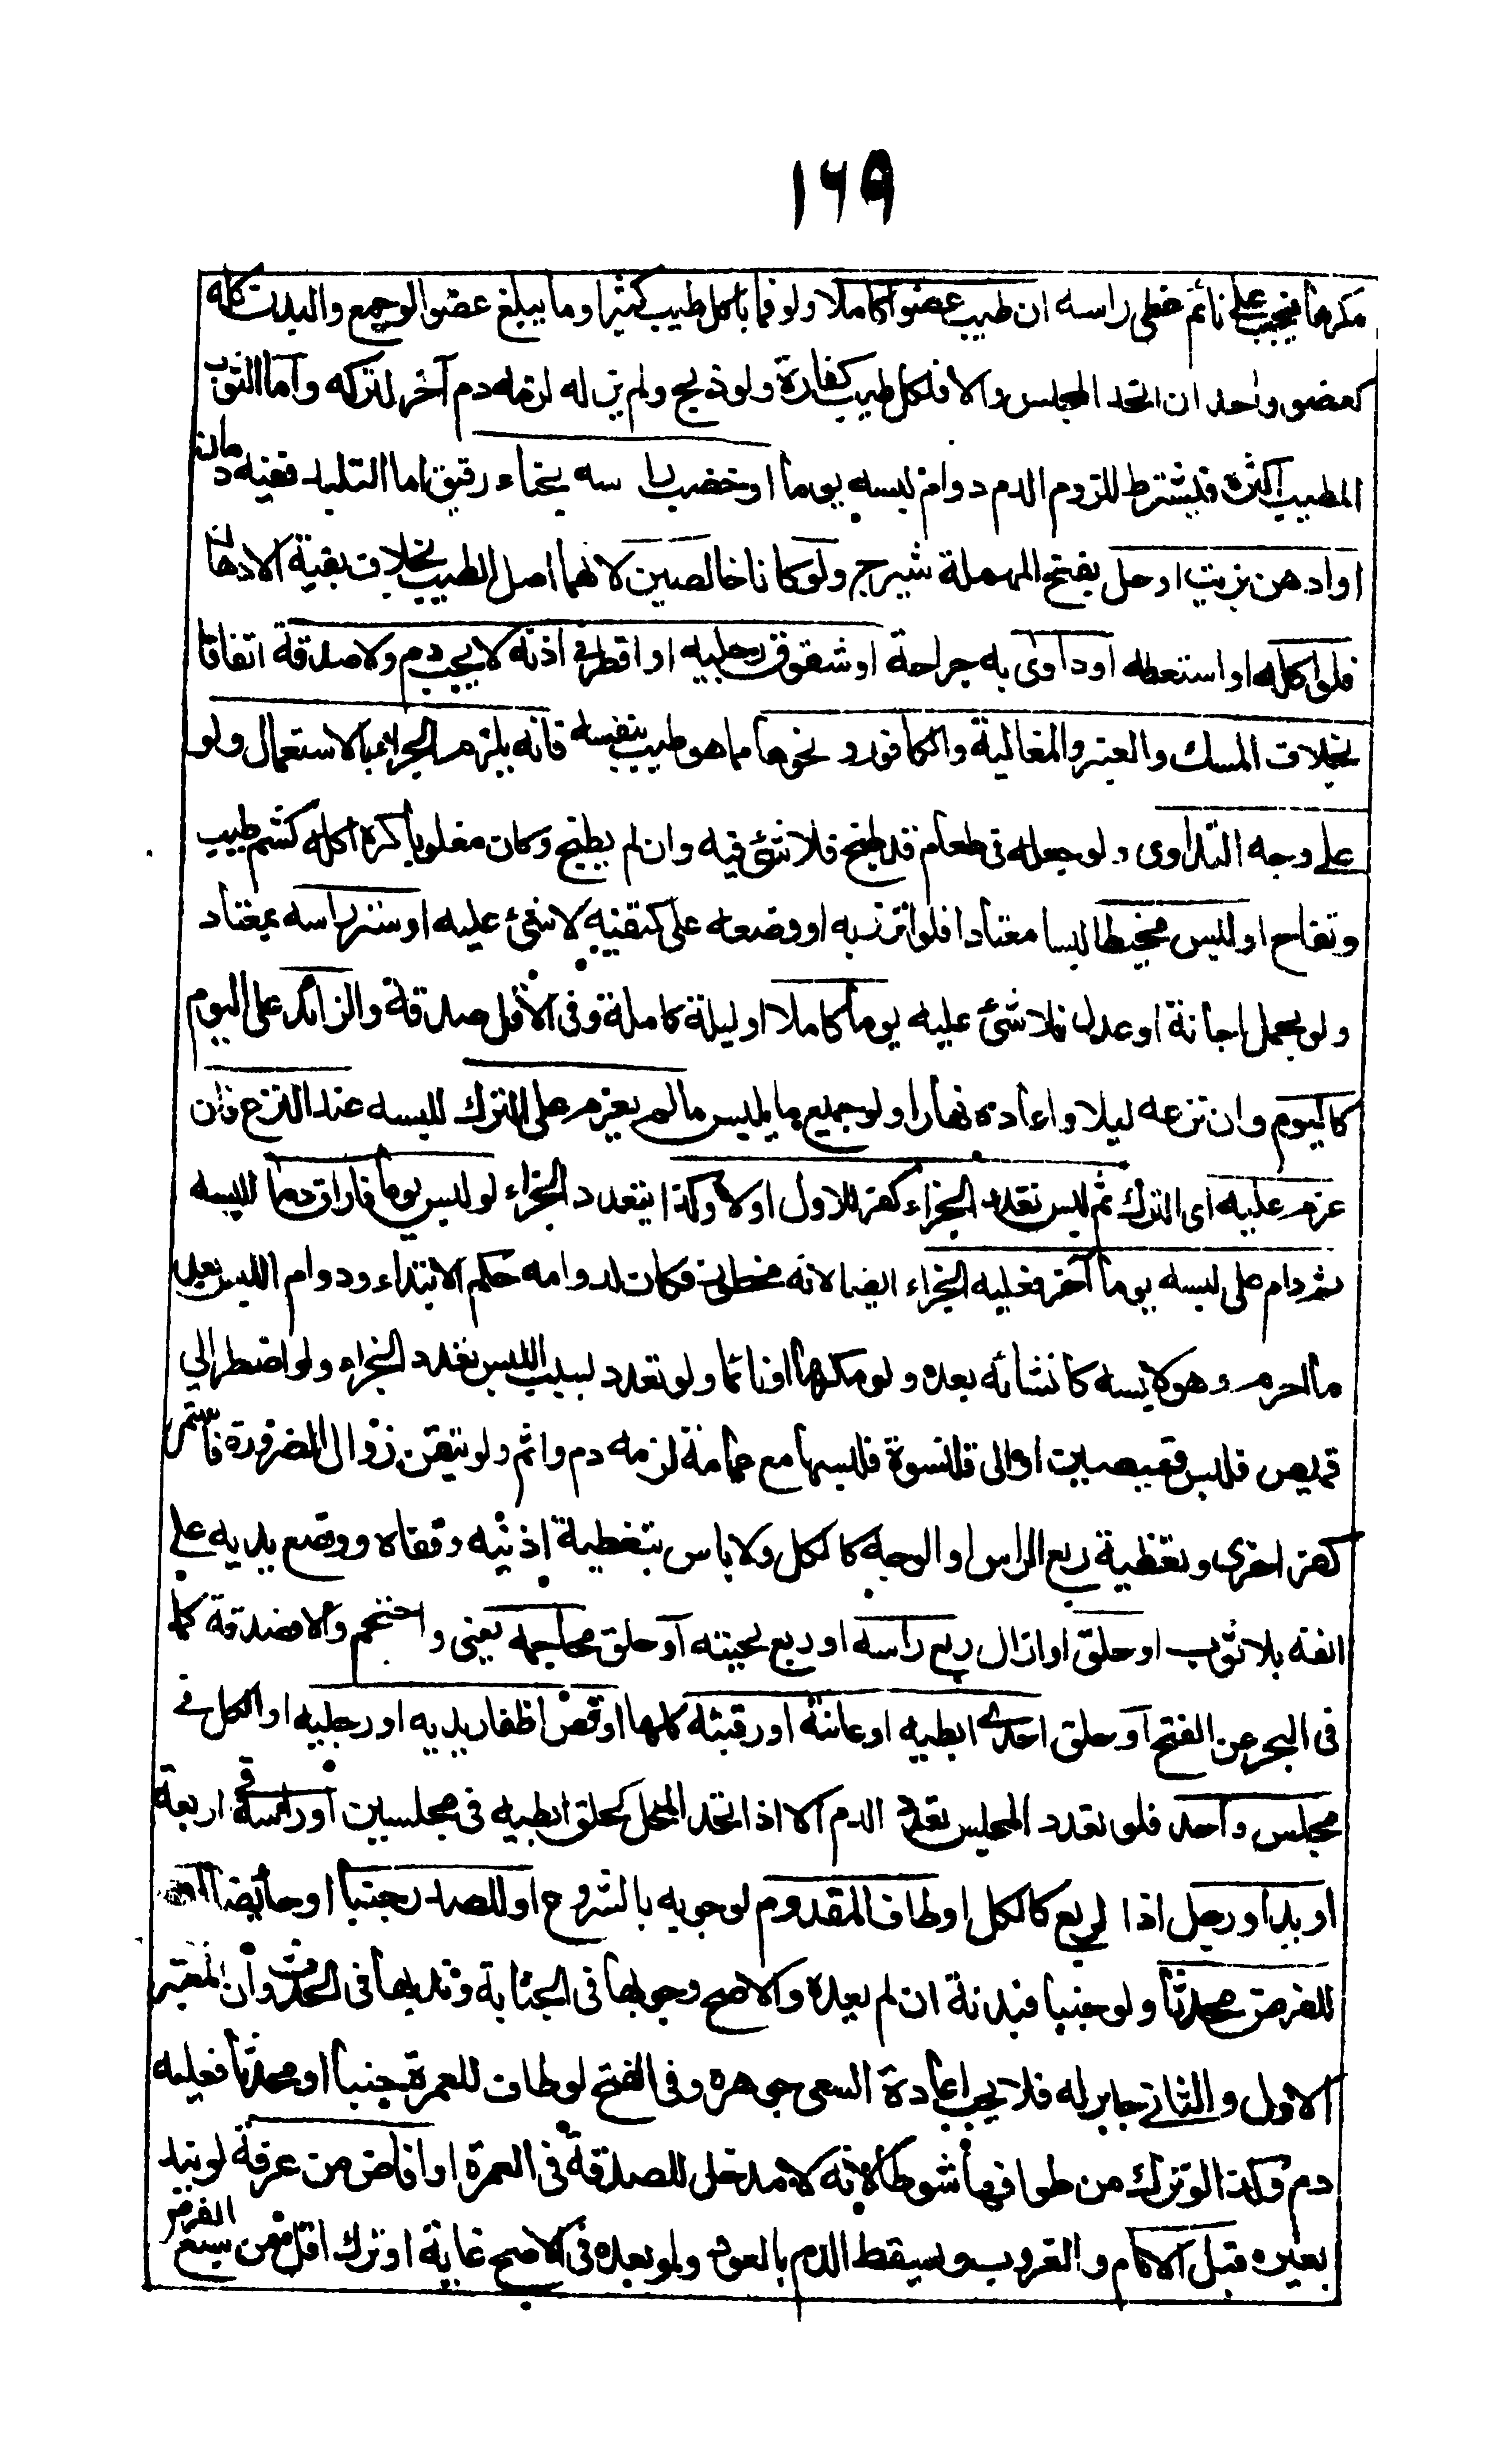 ١٦٩
مكرها فيجب على نائم غطى راسه ان طيب عضوا كاملا ولو فما باكل طيب كثير او ما يبلغ عضوا لو جمع والبدن كله
كعضو واحد ان اتحد المجلس والا فلكل طيب كفارة ولو ذبح ولم يزله لزمه دم آخر لتركه واما الثوب
المطيب اكثره فيشترط للزوم الدم دوام لبسه يوما او خضب راسه بحناء رقيق اما المتلبد ففيه دمان
او ادهن بزيت او حل بفتح المهملة شيرج ولو كانا خالصين لانهما اصل الطيب بخلاف بقية الادهان
فلو اكله او استعطه او داوى به جراحة او شقوق رجليه او اقطر في اذنه لا يجب دم ولا صدقة اتفاقا
بخلاف المسك والعنبر والغالية والكافور ونحوها مما هو طيب بنفسه فانه يلزمه الجزاء بالاستعمال ولو
على وجه التداوى ولو جعله في طعام قد طبخ فلا شئ فيه وان لم يطبخ وكان مغلوبا كره اكله كشم طيب
وتفاح او لبس مخيطا لبسا معتادا فلو اتزر به او وضعه على كتفيه لا شئ عليه او ستر راسه بمعتاد
ولو بحمل اجانة او عدل فلا شئ عليه يوما كاملا او ليلة كاملة وفى الاقل صدقة والزائد على اليوم
كاليوم وان نزعه ليلا واعاده نهارا ولو جميع ما يلبس ما لم يعزم على الترك للبسه عند النزع فان
عزم عليه اى الترك ثم لبس تعدد الجزاء كفر للاول او لا وكذا يتعدد الجزاء لو لبس يوما فاراق دما للبسه
ثم دام على لبسه يوما آخر فعليه الجزاء ايضا لانه محظور فكان لدوامه حكم الابتداء ودوام اللبس بعد
ما احرم وهو لابسه كانشائه بعده ولو مكرها او نائما ولو تعدد سبب اللبس تعدد الجزاء ولو اضطر الى
قميص فلبس قميصين او الى قلنسوة فلبسها مع عمامة لزمه دم واثم ولو تيقن زوال الضرورة فاستمر
كفر اخرى وتغطية ربع الراس او الوجه كالكل ولا باس بتغطية اذنيه وقفاه ووضع يديه على
انفه بلا ثوب او حلق او ازال ربع راسه او ربع لحيته او حلق محاجمه يعنى واحتجم والا فصدقة كما
فى البحر عن الفتح او حلق احدى ابطيه او عانته او رقبته كلها او قص اظفار يديه او رجليه او الكل في
مجلس واحد فلو تعدد المجلس تعدد الدم الا اذا اتحد المحل كحلق ابطيه فى مجلسين او راسه في اربعة
او يد او رجل اذا لربع كالكل او طاف للقدوم لوجوبه بالشروع او للصدر جنبا او حائضا او
للفرض محدثا ولو جنبا فبدنة ان لم يعده والاصح وجوبها فى الجنابة وندبها فى الحدث وان المعتبر
الاول والثاني جابر له فلا يجب اعادة السعى جوهره وفى الفتح لو طاف للعمرة جنبا او محدثا فعليه
دم وكذا لو ترك من طوافها شوطا لانه لا مدخل للصدقة فى العمرة او افاض من عرفة لو بند
بعيره قبل الامام والغروب ويسقط الدم بالعود ولو بعده فى الاصح غاية او ترك اقل من سبع الفرض